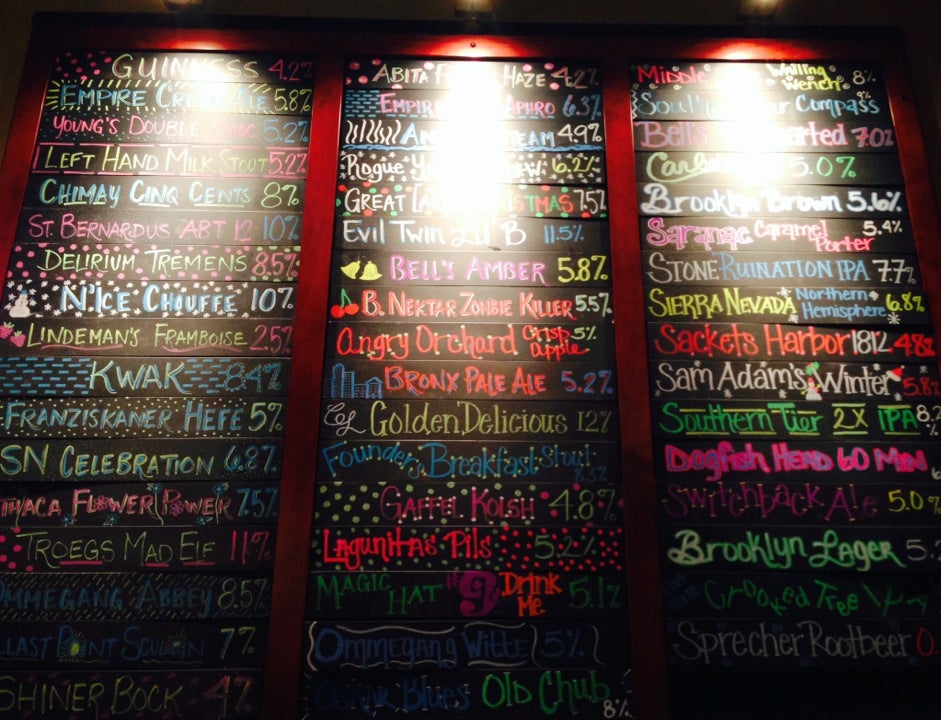 GUINNESS 4.2%
EMPIRE CREAM ALE 5.8%
YOUNG'S DOUBLE 5.2%
LEFT HAND MILK STOUT 5.2%
CHIMAY CINQ CENTS 8%
ST. BERNARDUS ABT 12 10%
DELIRIUM TREMENS 8.5%
N'ICE CHOUFFE 10%
LINDEMAN'S FRAMBOISE 2.5%
KWAK 8.4%
FRANZISKANER HEFE 5%
SN CELEBRATION 6.8%
ITHACA FLOWER POWER 7.5%
TROEGS MAD ELF 11%
OMMEGANG ABBEY 8.5%
BALLAST POINT SCULPIN 7%
SHINER BOCK 4%
ABITA HAZE 4.2%
EMPIRE APHRO 6.3%
STEAM 4.9%
ROGUE 6.2%
GREAT LAKES CHRISTMAS 7.5%
EVIL TWIN B 11.5%
BELL'S AMBER 5.8%
B. NEKTAR ZOMBIE KILLER 5.5%
Angry Orchard Crisp apple 5%
BRONX PALE ALE 5.2%
Golden Delicious 12%
Founder's Breakfast Stout 8.3%
GAFFEL KOLSH 4.8%
LAGUNITA'S PILS 5.2%
MAGIC HAT #9 DRINK ME 5.1%
OMMEGANG WITTE 5%
OSKAR BLUES OLD CHUB 8%
MIDDLE Wailing Wench 8%
COMPASS 9%
BELL'S HEARTED 7.0%
5.0%
Brooklyn Brown 5.6%
Saranac Caramel Porter 5.4%
STONE RUINATION IPA 7.7%
SIERRA NEVADA Northern Hemisphere 6.8%
Sackets Harbor 1812 4.8%
Sam Adam's Winter 5.8%
SOUTHERN TIER 2X IPA 8.2
DOGFISH HEAD 60 MIN
SWITCHBACK ALE 5.0%
Brooklyn Lager 5.
CROOKED TREE IPA
Sprecher Rootbeer 0.